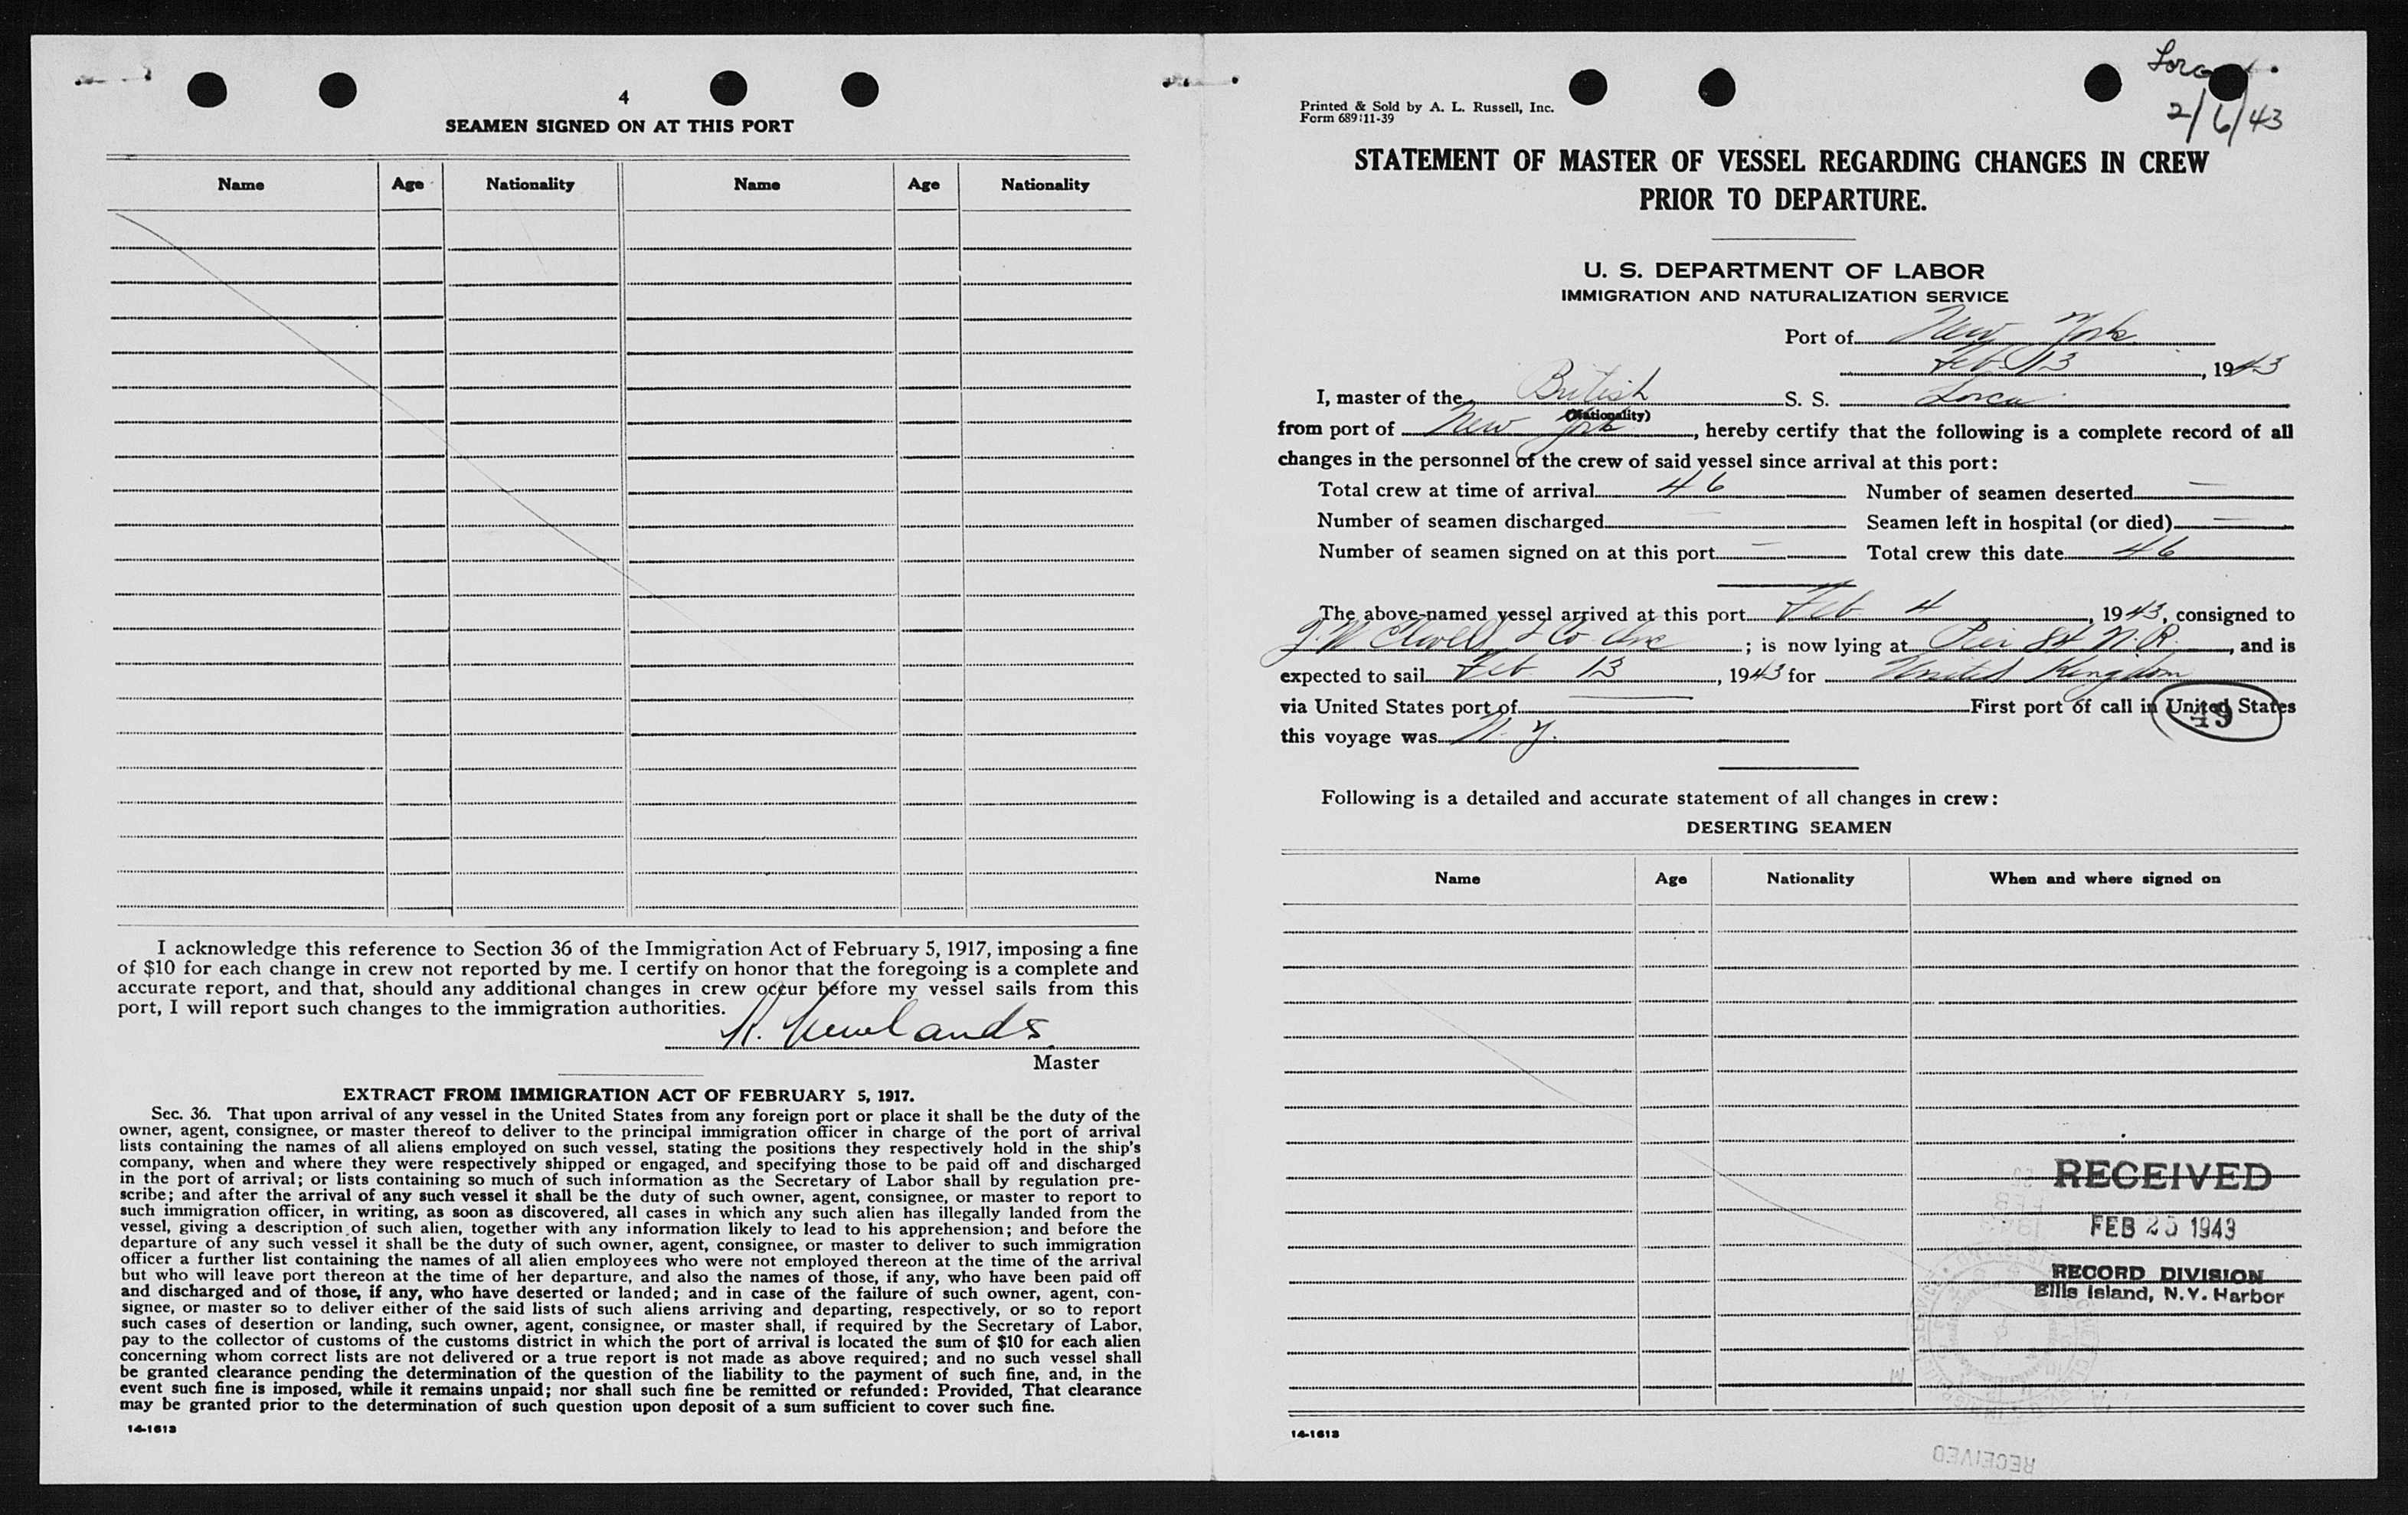 4
SEAMEN SIGNED ON AT THIS PORT
Name Age Nationality Name Age Nationality
I acknowledge this reference to Section 36 of the Immigration Act of February 5, 1917, imposing a fine
of $10 for each change in crew not reported by me. I certify on honor that the foregoing is a complete and
accurate report, and that, should any additional changes in crew occur before my vessel sails from this
port, I will report such changes to the immigration authorities.
R. Newlands
Master
EXTRACT FROM IMMIGRATION ACT OF FEBRUARY 5, 1917.
Sec. 36. That upon arrival of any vessel in the United States from any foreign port or place it shall be the duty of the
owner, agent, consignee, or master thereof to deliver to the principal immigration officer in charge of the port of arrival
lists containing the names of all aliens employed on such vessel, stating the positions they respectively hold in the ship's
company, when and where they were respectively shipped or engaged, and specifying those to be paid off and discharged
in the port of arrival; or lists containing so much of such information as the Secretary of Labor shall by regulation pre-
scribe; and after the arrival of any such vessel it shall be the duty of such owner, agent, consignee, or master to report to
such immigration officer, in writing, as soon as discovered, all cases in which any such alien has illegally landed from the
vessel, giving a description of such alien, together with any information likely to lead to his apprehension; and before the
departure of any such vessel it shall be the duty of such owner, agent, consignee, or master to deliver to such immigration
officer a further list containing the names of all alien employees who were not employed thereon at the time of the arrival
but who will leave port thereon at the time of her departure, and also the names of those, if any, who have been paid off
and discharged and of those, if any, who have deserted or landed; and in case of the failure of such owner, agent, con-
signee, or master so to deliver either of the said lists of such aliens arriving and departing, respectively, or so to report
such cases of desertion or landing, such owner, agent, consignee, or master shall, if required by the Secretary of Labor,
pay to the collector of customs of the customs district in which the port of arrival is located the sum of $10 for each alien
concerning whom correct lists are not delivered or a true report is not made as above required; and no such vessel shall
be granted clearance pending the determination of the question of the liability to the payment of such fine, and, in the
event such fine is imposed, while it remains unpaid; nor shall such fine be remitted or refunded: Provided, That clearance
may be granted prior to the determination of such question upon deposit of a sum sufficient to cover such fine.
14-1613
2/6/43
Printed & Sold by A. L. Russell, Inc.
Form 689:11-39
STATEMENT OF MASTER OF VESSEL REGARDING CHANGES IN CREW
PRIOR TO DEPARTURE.
U. S. DEPARTMENT OF LABOR
IMMIGRATION AND NATURALIZATION SERVICE
Port of New York
Feb 13, 1943
I, master of the British S. S. Lorca
(Nationality)
from port of New York, hereby certify that the following is a complete record of all
changes in the personnel of the crew of said vessel since arrival at this port:
Total crew at time of arrival 46 Number of seamen deserted —
Number of seamen discharged — Seamen left in hospital (or died) —
Number of seamen signed on at this port — Total crew this date 46
The above-named vessel arrived at this port Feb 4, 1943, consigned to
J. W. & Co Inc; is now lying at Pier 84 N. R., and is
expected to sail Feb 13, 1943 for United Kingdom
via United States port of — First port of call in United States
49
this voyage was N. Y.
Following is a detailed and accurate statement of all changes in crew:
DESERTING SEAMEN
Name Age Nationality When and where signed on
RECEIVED
FEB 25 1943
RECORD DIVISION
Ellis Island, N. Y. Harbor
14-1613
RECEIVED